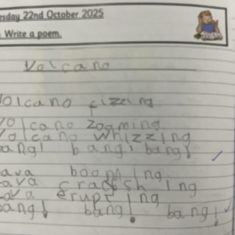 sday 22nd October 2025
Write a poem.
Volcano
Volcano fizzing
Volcano zooming
Volcano whizzing
bang! bang! bang!
Lava booming
Lava crashing
Lava erupting
bang! bang! bang!